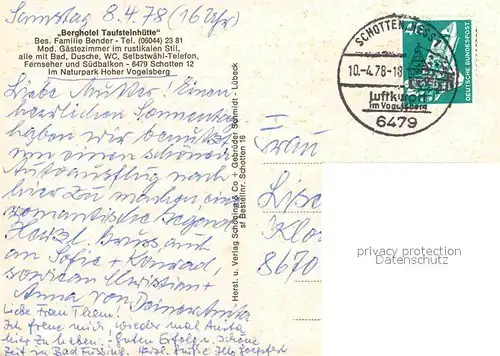 Samstag 8.4.78 (16 Uhr)
„Berghotel Taufsteinhütte"
Bes. Familie Bender - Tel. (06044) 23 81
Mod. Gästezimmer im rustikalen Stil,
alle mit Bad, Dusche, WC, Selbstwähl-Telefon,
Fernseher und Südbalkon - 6479 Schotten 12
Im Naturpark Hoher Vogelsberg
Liebe Mutter! Einen
herrlichen Sonnentag
haben wir benutzt
um einen schönen
Autoausflug nach
hier zu machen in
romantische Gegend
Herzl. Gruss auch
an Sofie + Konrad,
sowie Christian +
Anna von Deiner Anita
Liebe Frau Them!
Ich freue mich, wieder mal Anita
hier zu haben. - guten Erfolg u. schöne
Zeit in Bad Füssing. Herzl. Grüße Ihre
Herst. u. Verlag Schöning & Co + Gebrüder Schmidt · Lübeck
sf Bestellnr. Schotten 16
SCHOTTEN, HESS
10.-4.78-18
Luftkurort
im Vogelsberg
6479
DEUTSCHE BUNDESPOST
Frau
8670
privacy protection
VDM